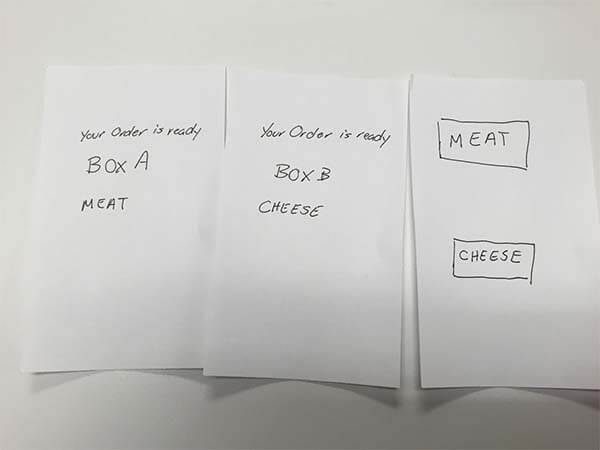 Your Order is ready
BOX A
MEAT
Your Order is ready
BOX B
CHEESE
MEAT
CHEESE